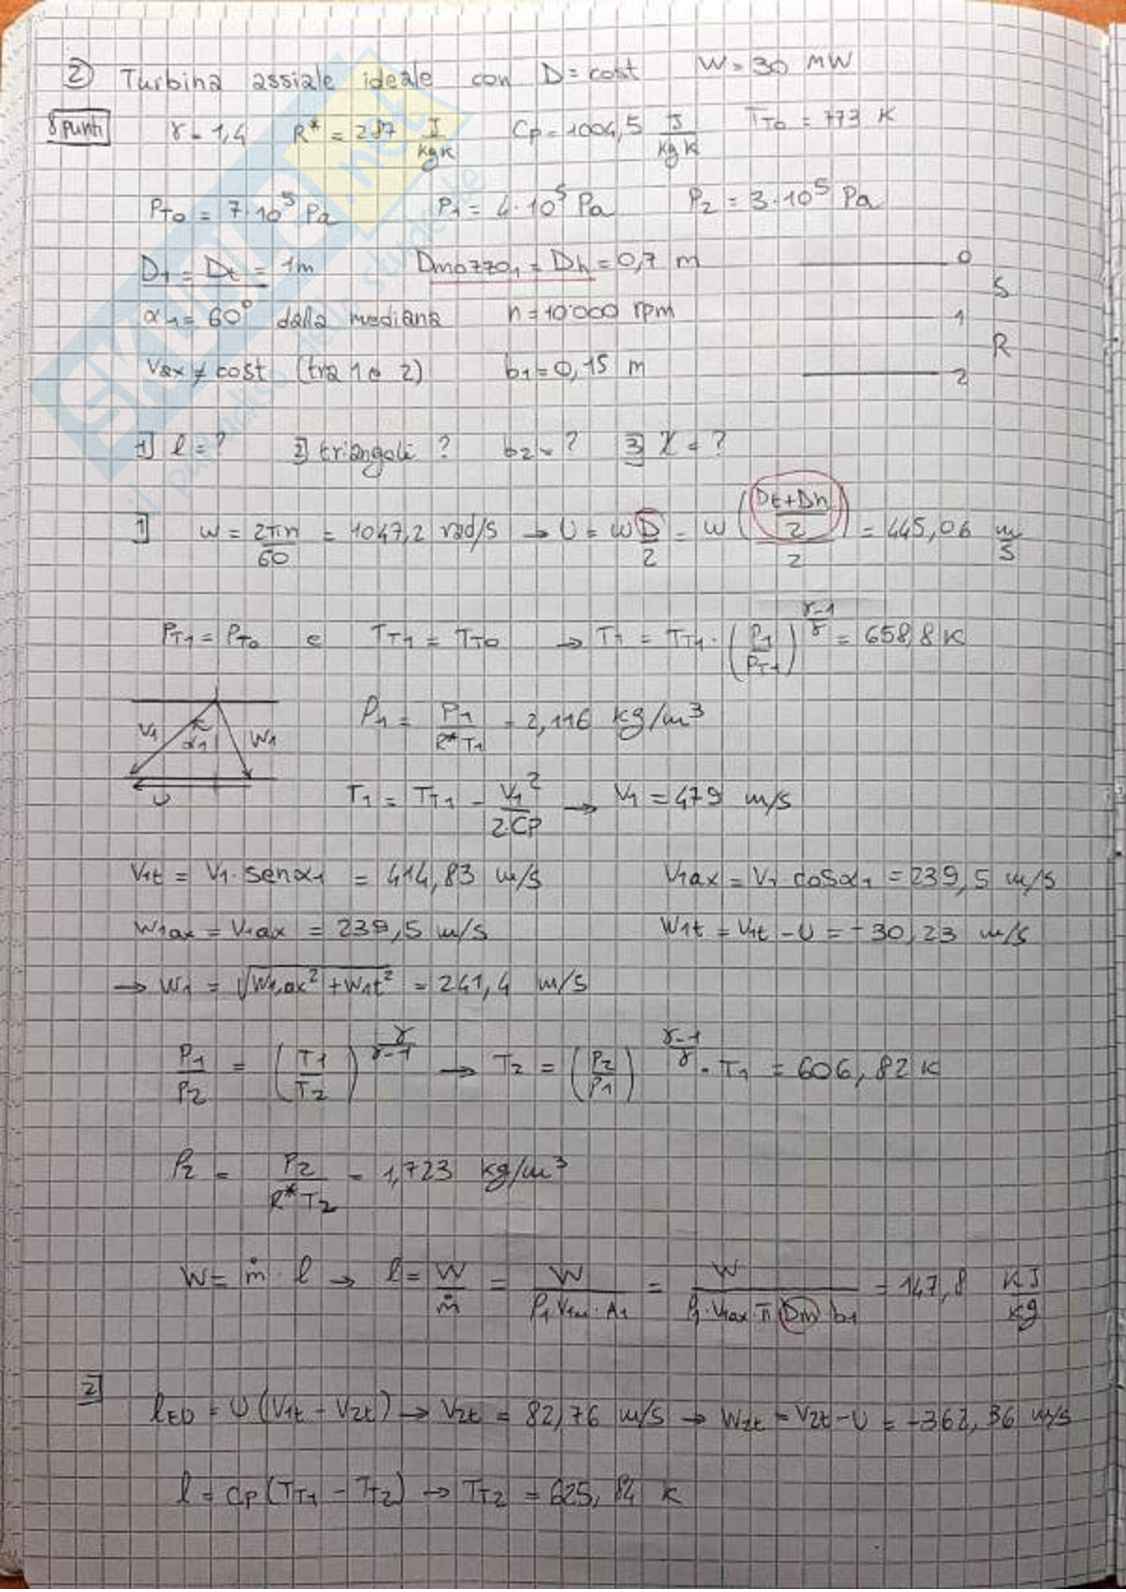 2) Turbina assiale ideale con D = cost W = 30 MW
8 punti γ = 1,4 R* = 287 J/kgK Cp = 1004,5 J/kgK TT0 = 773 K
PT0 = 7·10^5 Pa P1 = 4·10^5 Pa P2 = 3·10^5 Pa
D1 = Dt = 1m Dmozzo1 = Dh = 0,7 m
0
S
α1 = 60° dalla mediana n = 10'000 rpm
1
R
Vax ≠ cost (tra 1 e 2) b1 = 0,15 m
2
1] l = ? 2] triangoli ? b2 = ? 3] χ = ?
1] ω = 2πn/60 = 1047,2 rad/s → U = ω D/2 = ω ((Dt+Dh)/2)/2 = 445,06 m/s
PT1 = PT0 e TT1 = TT0 → T1 = TT1 · (P1/PT1)^((γ-1)/γ) = 658,8 K
V1 α1 W1 U
ρ1 = P1/(R* T1) = 2,116 kg/m³
T1 = TT1 - V1²/(2·CP) → V1 = 479 m/s
V1t = V1·senα1 = 414,83 m/s V1ax = V1·cosα1 = 239,5 m/s
W1ax = V1ax = 239,5 m/s W1t = V1t - U = -30,23 m/s
→ W1 = √(W1ax² + W1t²) = 241,4 m/s
P1/P2 = (T1/T2)^(γ/(γ-1)) → T2 = (P2/P1)^((γ-1)/γ) · T1 = 606,82 K
ρ2 = P2/(R* T2) = 1,723 kg/m³
W = ṁ · l → l = W/ṁ = W/(ρ1·V1ax·A1) = W/(ρ1·V1ax·π·Dm·b1) = 147,8 KJ/kg
2] lEU = U (V1t - V2t) → V2t = 82,76 m/s → W2t = V2t - U = -362,36 m/s
l = cp (TT1 - TT2) → TT2 = 625,84 K